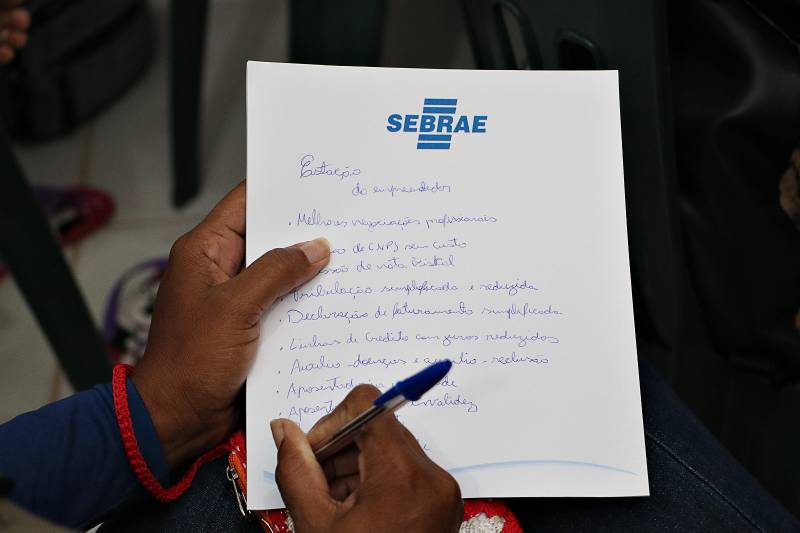 SEBRAE
Estação
do empreendedor
. Melhores negociações profissionais
de CNPJ sem custo
de nota fiscal
. Tributação simplificada e reduzida
. Declaração de faturamento simplificada
. Linhas de Credito com juros reduzidos
. Auxilio - doenças e auxilio - reclusão
. Aposentad
. Aposent invalidez